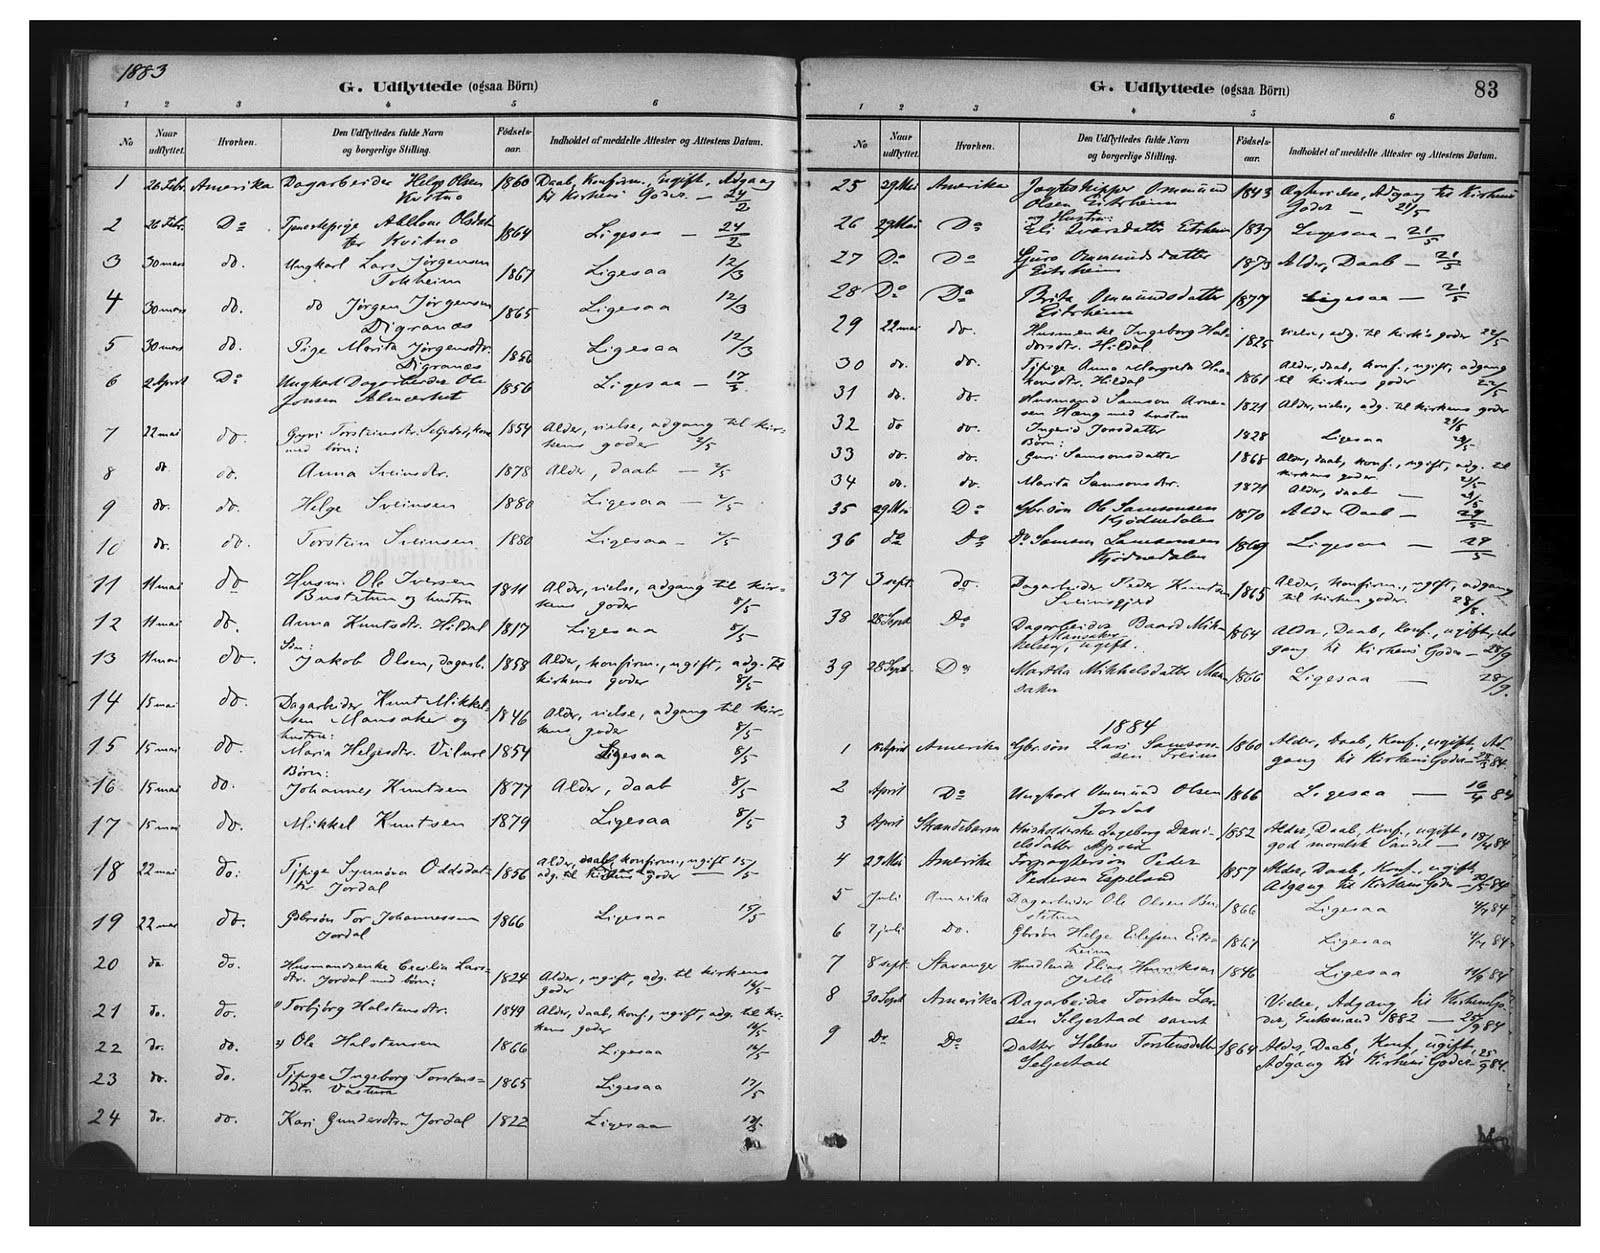 1883
G. Udflyttede (ogsaa Börn)
1 2 3 4 5 6
No
Naar udflyttet.
Hvorhen.
Den Udflyttedes fulde Navn og borgerlige Stilling.
Födsels-aar.
Indholdet af meddelte Attester og Attestens Datum.
1 26 Febr. Amerika Dagarbeider Helge Olsen 1860 Daab, Konfirm., ugift, Adgang
til Kirkens Goder. — 24/2
2 26 Febr. Do Olsdat- 1864 Ligesaa — 24/2
ter Kvitno
3 30 mars do. Ungkarl Lars Jørgensen 1867 Ligesaa 12/3
Tokheim
4 30 mars do. do Jørgen Jørgensen 1865 Ligesaa 12/3
Digranæs
5 30 mars do. Pige Marita Jørgensdtr. 1856 Ligesaa 12/3
Digranæs
6 2 April Do Ungkarl Dagarbeider Ole 1856 Ligesaa — 17/3
Jonsen
7 22 mai do. Torsteinsdtr. 1854 Alder, vielse, adgang til kir-
med börn: kens goder 2/5
8 do. do. Anna Sveinsdtr. 1878 Alder, daab — 2/5
9 do. do. Helge Sveinsen 1880 Ligesaa — 2/5
10 do. do. Torstein Sveinsen 1880 Ligesaa — 2/5
11 11 mai do Husm. Ole Iversen 1811 Alder, vielse, adgang til kir-
Bustetun og hustru kens goder 8/5
12 11 mai do. Anna Knutsdtr. Hildal 1817 Ligesaa 8/5
13 11 mai do. Jakob Olsen, dagarb. 1858 Alder, konfirm., ugift, adg. til
kirkens goder 8/5
14 15 mai do. Dagarbeider Knut Mikkel- 1846 Alder, vielse, adgang til kir-
sen Mansaker og kens goder 8/5
hustru:
15 15 mai do. Maria Helgesdtr. 1854 Ligesaa 8/5
Börn:
16 15 mai do. Johannes Knutsen 1877 Alder, daab 8/5
17 15 mai do. Mikkel Knutsen 1879 Ligesaa 8/5
18 22 mai do. Tjpige Synnöva Oddsdat- 1856 Alder, daab, konfirm., ugift 15/5
ter Jordal adg. til kirkens goder
19 22 mai do. Gbrsön Tor Johannessen 1866 Ligesaa 15/5
Jordal
20 do. do. Husmandsenke Cecilia Lars- 1824 Alder, ugift, adg. til kirkens
dtr. Jordal med börn: goder 16/5
21 do. do. 1) Torbjörg Halstensdtr. 1849 Alder, daab, konf., ugift, adg. til kir-
kens goder 16/5
22 do. do. 2) Ole Halstensen 1866 Ligesaa 16/5
23 do. do. Tjpige Ingeborg Torstens- 1865 Ligesaa 17/5
dtr.
24 do. do. Kari Gunarsdtr. Jordal 1822 Ligesaa
G. Udflyttede (ogsaa Börn)
83
1 2 3 4 5 6
No
Naar udflyttet.
Hvorhen.
Den Udflyttedes fulde Navn og borgerlige Stilling.
Födsels-aar.
Indholdet af meddelte Attester og Attestens Datum.
25 29 Mai Amerika Jagteskipper Ommund 1843 Ægteviede, Adgang til Kirkens
Olsen Eitrheim Goder — 21/5
og Hustru:
26 29 Mai Do Eli Eitrheim 1837 Ligesaa — 21/5
27 Do Do Guro Ommundsdatter 1873 Alder, Daab — 21/5
Eitrheim
28 Do Do Brita Ommundsdatter 1877 Ligesaa — 21/5
Eitrheim
29 22 mai do. Husmenke Ingeborg Hal- 1825 vielse, adg. til kirk's goder 22/5
dorsdtr. Hildal
30 do. do. Tjpige Anna Margreta Haa- 1861 Alder, daab, konf., ugift, adgang
konsdtr. Hildal til kirkens goder 22/5
31 do. do. Husmand Samson Arne- 1821 Alder, vielse, adg. til kirkens goder
sen Haug med hustru
32 do do. Ingerid Jonsdatter 1828 Ligesaa
Börn:
33 do. do. Guri Samsonsdatter 1868 Alder, daab, konf., ugift, adg. til
kirkens goder.
34 do. do. Marita Samsonsdtr. 1871 Alder, daab —
35 29 Mai Do Gbrsön Ole Samsonsen 1870 Alder Daab — 29/5
36 do Do Do Samson Samsonsen 1869 Ligesaa — 29/5
37 3 sept. do. Dagarbeider Peder Knutsen 1865 Alder, konfirm., ugift, adgang
til kirkens goder. 28/8.
38 28 Sept Do Dagarbeider Baard Mik- 1864 Alder, Daab, Konf., ugift, Ad-
kelsen, Mansaker ugift. gang til Kirkens Goder — 28/9
39 28 Sept. Do Martha Mikkelsdatter Man- 1866 Ligesaa — 28/9.
saker
1884
1 April Amerika Gbrsön Lars Samson- 1860 Alder, Daab, Konf., ugift, Ad-
sen gang til Kirkens Goder — 84.
2 April Do Ungkarl Ommund Olsen 1866 Ligesaa — 16/4 84
Jordal
3 April Strandebarm Husholderske Ingeborg Dani- 1852 Alder, Daab, Konf., ugift, 18/4 84
elsdatter god moralsk Vandel —
4 29 Mai Amerika Forpagtersön Peder 1857 Alder, Daab, Konf., ugift,
Pedersen Espeland Adgang til Kirkens Goder — 84
5 Juli Amerika Dagarbeider Ole Olsen Bu- 1866 Ligesaa 4/7 84
stetun
6 7 juli Do. Gbrsön Helge Eilefsen Eitr- 1867 Ligesaa 4/7 84
heim
7 8 sept. Stavanger Elias Henriksen 1846 Ligesaa 84
8 30 Sept Amerika Dagarbeider Torsten Lar- Vielse, Adgang til Kirkens Go-
sen Seljestad samt der, Enkemand 1882 — 25/9 84
9 Do Do Datter Torstensdatter 1864 Alder, Daab, Konf, ugift,
Seljestad Adgang til Kirkens Goder — 25/9 84.